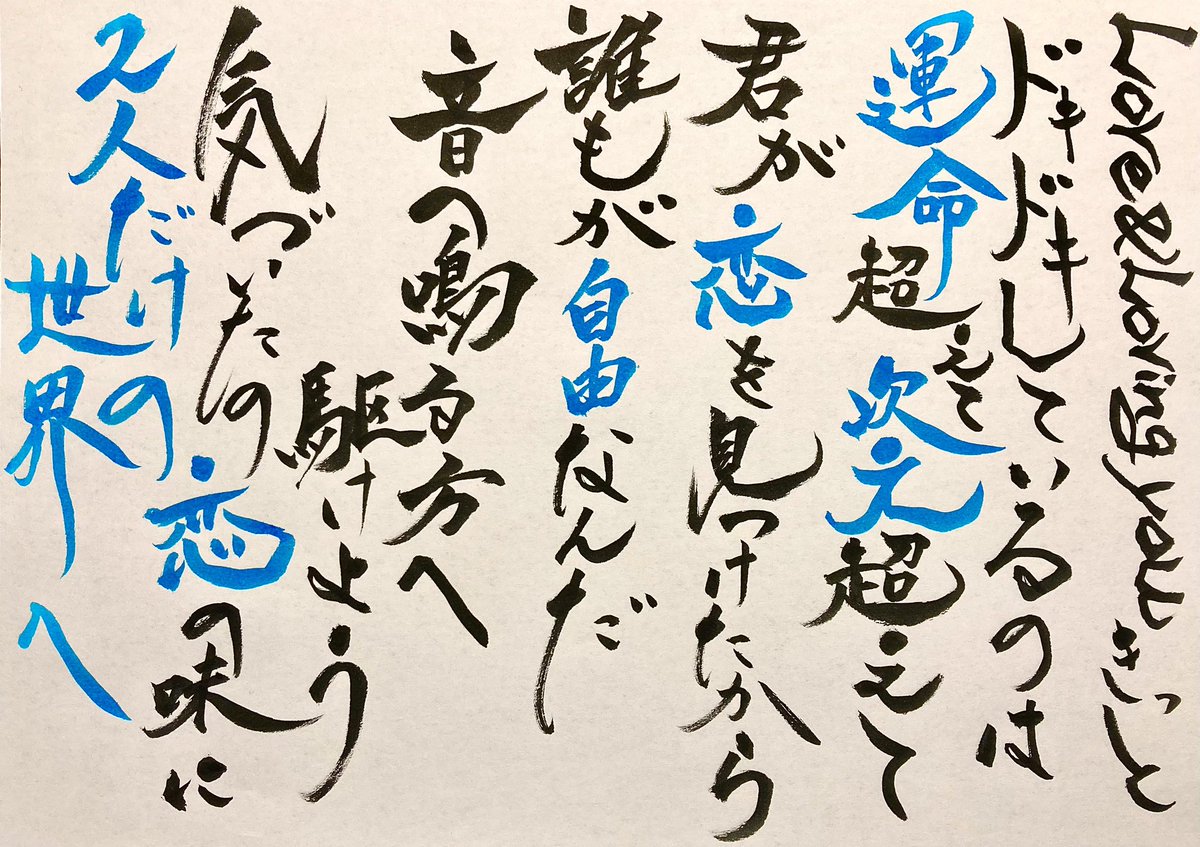 Love&Loving you きっと
ドキドキしているのは
運命超えて次元超えて
君が恋を見つけたから
誰もが自由なんだ
音の鳴る方へ
駆けよう
気づいたの恋の味に
2人だけの
世界へ